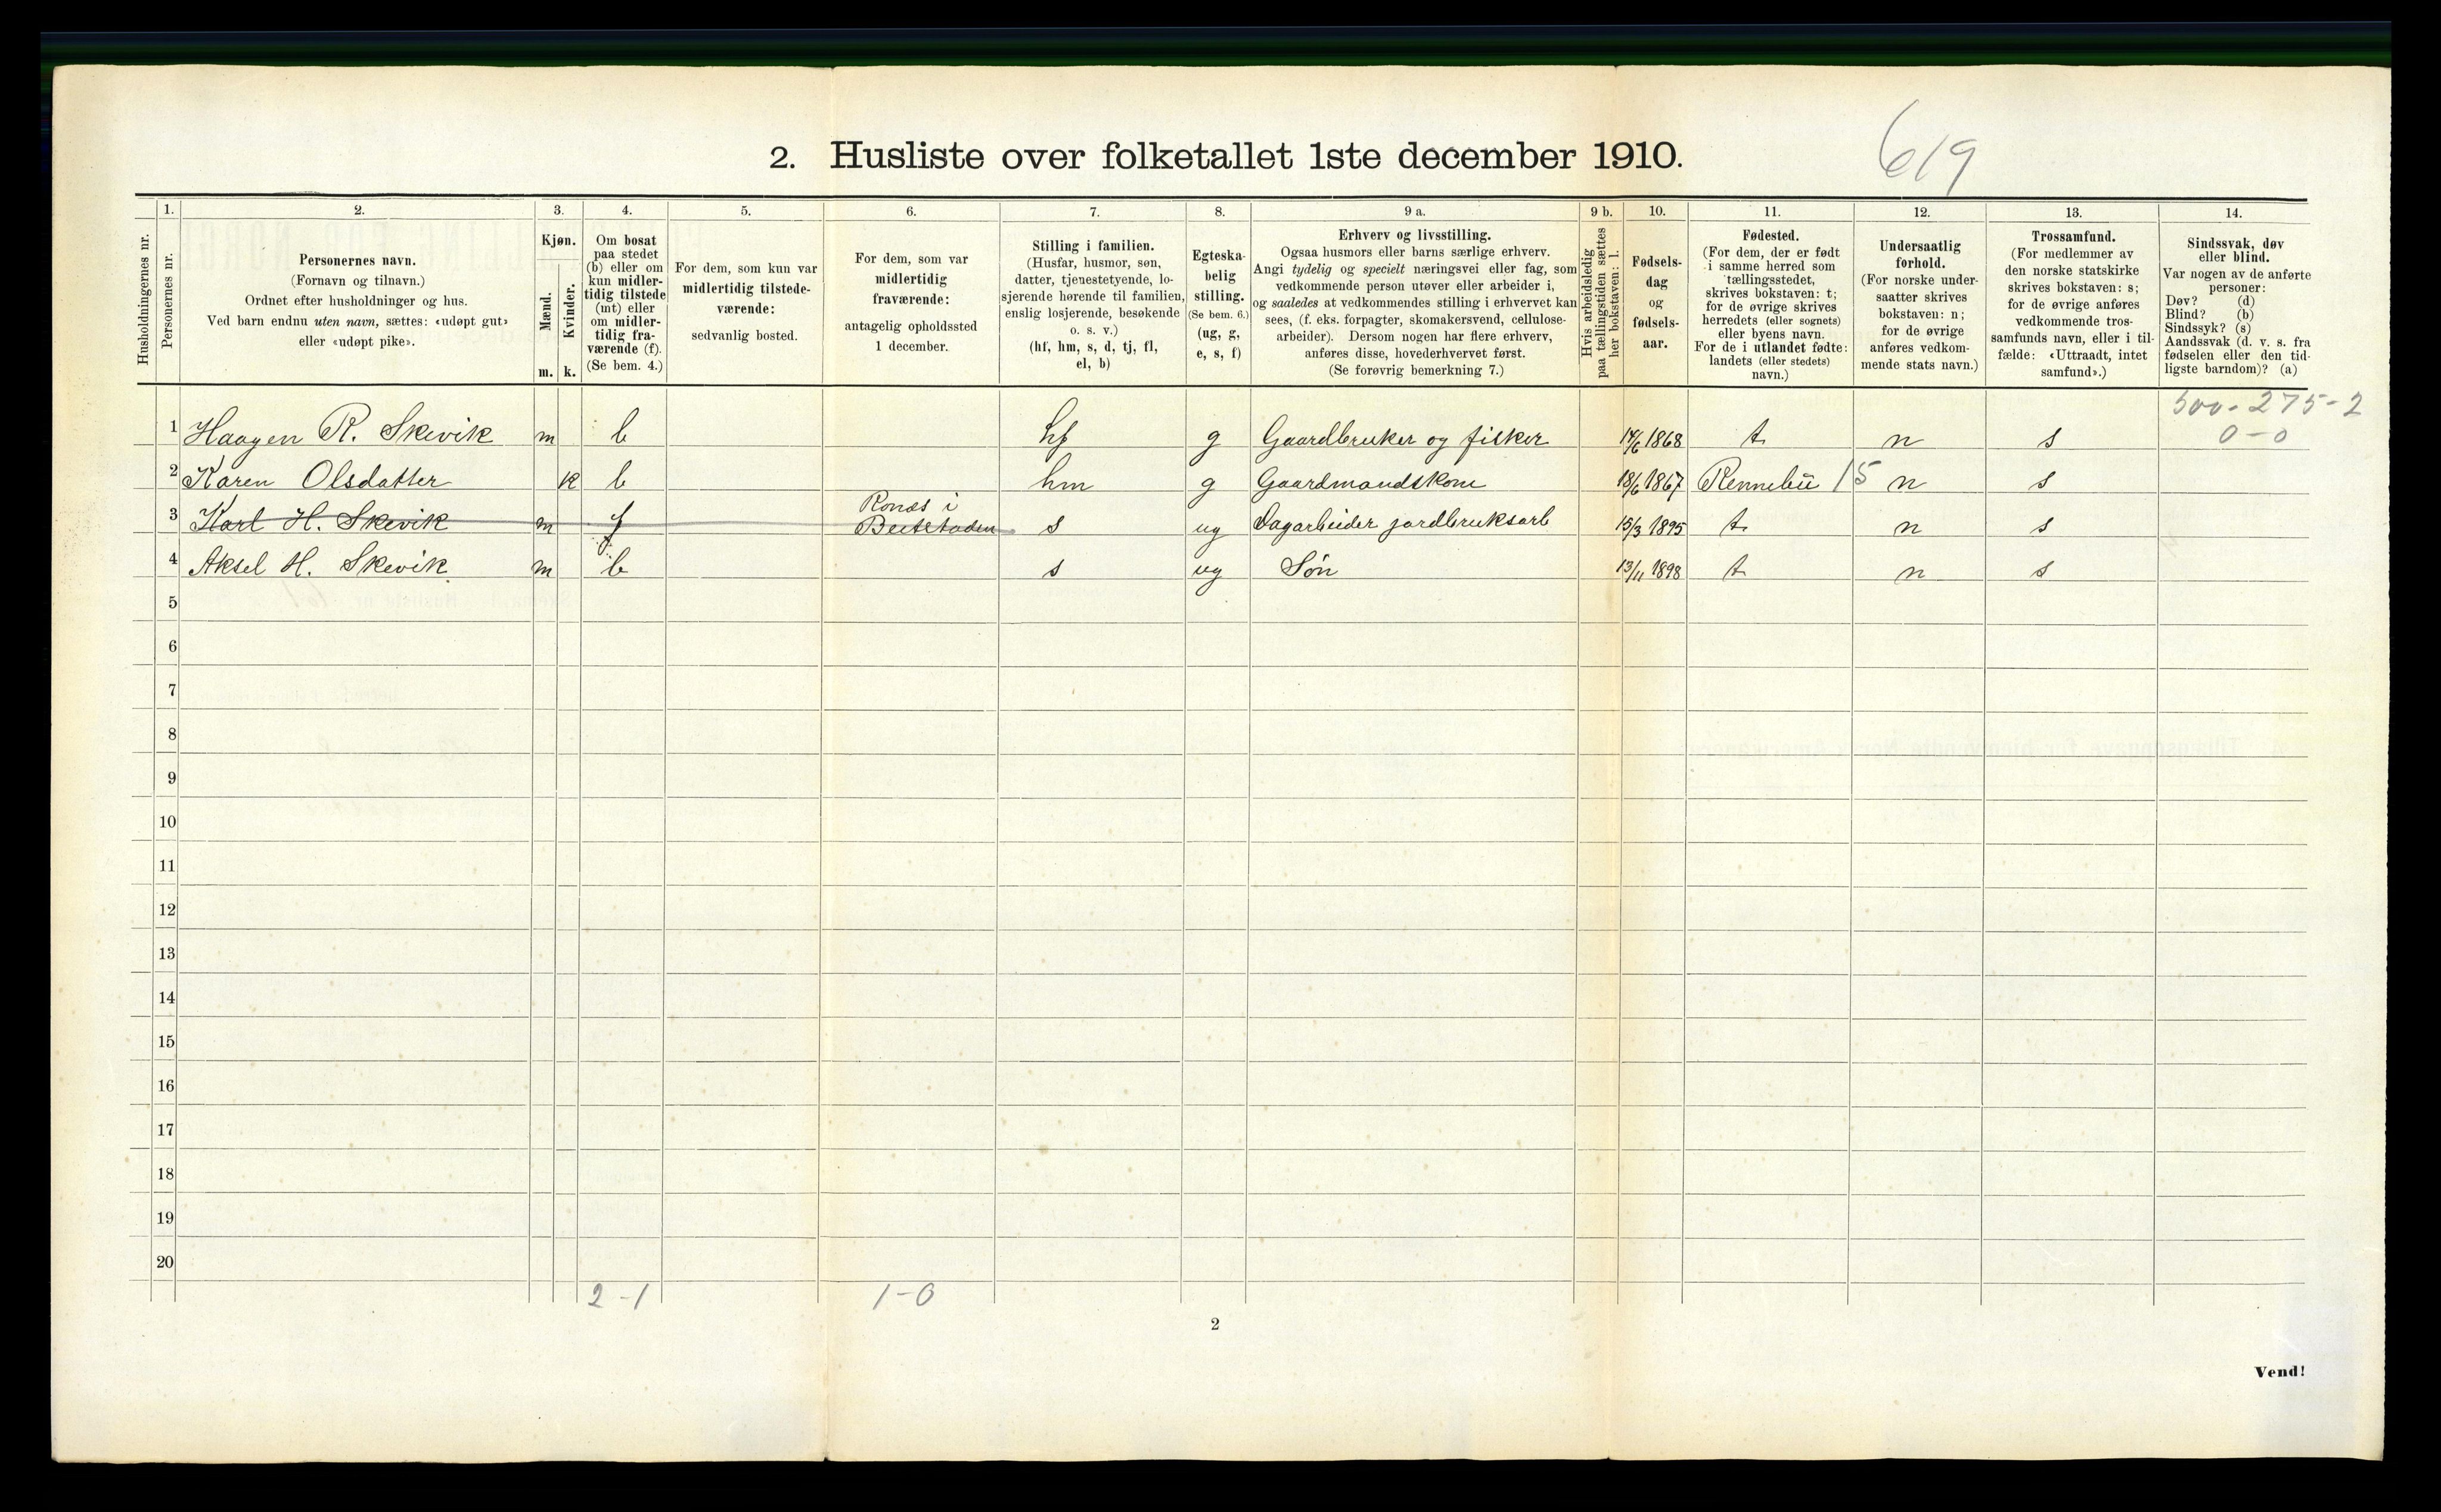 2. Husliste over folketallet 1ste december 1910.
619
1.
2.
3.
4.
5.
6.
7.
8.
9 a.
9 b.
10.
11.
12.
13.
14.
Husholdningernes nr.
Personernes nr.
Personernes navn.
(Fornavn og tilnavn.)
Ordnet efter husholdninger og hus.
Ved barn endnu uten navn, sættes: «udøpt gut»
eller «udøpt pike».
Kjøn.
Mænd.
Kvinder.
m. k.
Om bosat
paa stedet
(b) eller om
kun midler-
tidig tilstede
(mt) eller
om midler-
tidig fra-
værende (f).
(Se bem. 4.)
For dem, som kun var
midlertidig tilstede-
værende:
sedvanlig bosted.
For dem, som var
midlertidig
fraværende:
antagelig opholdssted
1 december.
Stilling i familien.
(Husfar, husmor, søn,
datter, tjenestetyende, lo-
sjerende hørende til familien,
enslig losjerende, besøkende
o. s. v.)
(hf, hm, s, d, tj, fl,
el, b)
Egteska-
belig
stilling.
(Se bem. 6.)
(ug, g,
e, s, f)
Erhverv og livsstilling.
Ogsaa husmors eller barns særlige erhverv.
Angi tydelig og specielt næringsvei eller fag, som
vedkommende person utøver eller arbeider i,
og saaledes at vedkommendes stilling i erhvervet kan
sees, (f. eks. forpagter, skomakersvend, cellulose-
arbeider). Dersom nogen har flere erhverv,
anføres disse, hovederhvervet først.
(Se forøvrig bemerkning 7.)
Hvis arbeidsledig
paa tællingstiden sættes
her bokstaven: l.
Fødsels-
dag
og
fødsels-
aar.
Fødested.
(For dem, der er født
i samme herred som
tællingsstedet,
skrives bokstaven: t;
for de øvrige skrives
herredets (eller sognets)
eller byens navn.
For de i utlandet fødte:
landets (eller stedets)
navn.)
Undersaatlig
forhold.
(For norske under-
saatter skrives
bokstaven: n;
for de øvrige
anføres vedkom-
mende stats navn.)
Trossamfund.
(For medlemmer av
den norske statskirke
skrives bokstaven: s;
for de øvrige anføres
vedkommende tros-
samfunds navn, eller i til-
fælde: «Uttraadt, intet
samfund».)
Sindssvak, døv
eller blind.
Var nogen av de anførte
personer:
Døv? (d)
Blind? (b)
Sindssyk? (s)
Aandssvak (d. v. s. fra
fødselen eller den tid-
ligste barndom)? (a)
500-275-2
0-0
1 Haagen R. Skevik m b hf g Gaardbruker og fisker 14/6 1868 t n s
2 Karen Olsdatter k b hm g Gaardmandskone 18/6 1867 Rennebu 15 n s
Ronæs i
3 Karl H. Skevik m f Beitstaden s ug Dagarbeider jordbruksarb 15/3 1895 t n s
4 Aksel H. Skevik m b s ug Søn 13/11 1898 t n s
5
6
7
8
9
10
11
12
13
14
15
16
17
18
19
20
2-1 1-0
2
Vend!